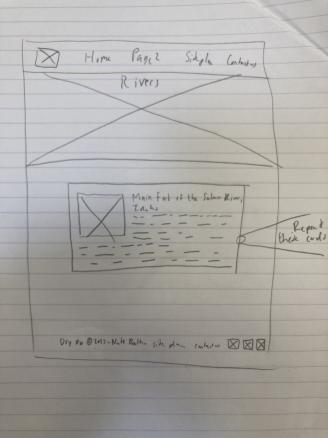 Home Page2 Siteplan Contact us
Rivers
Main Fork of the Salmon River,
Idaho
Repeat
these cards
Dry Ag @2022 Nate site plan contact us